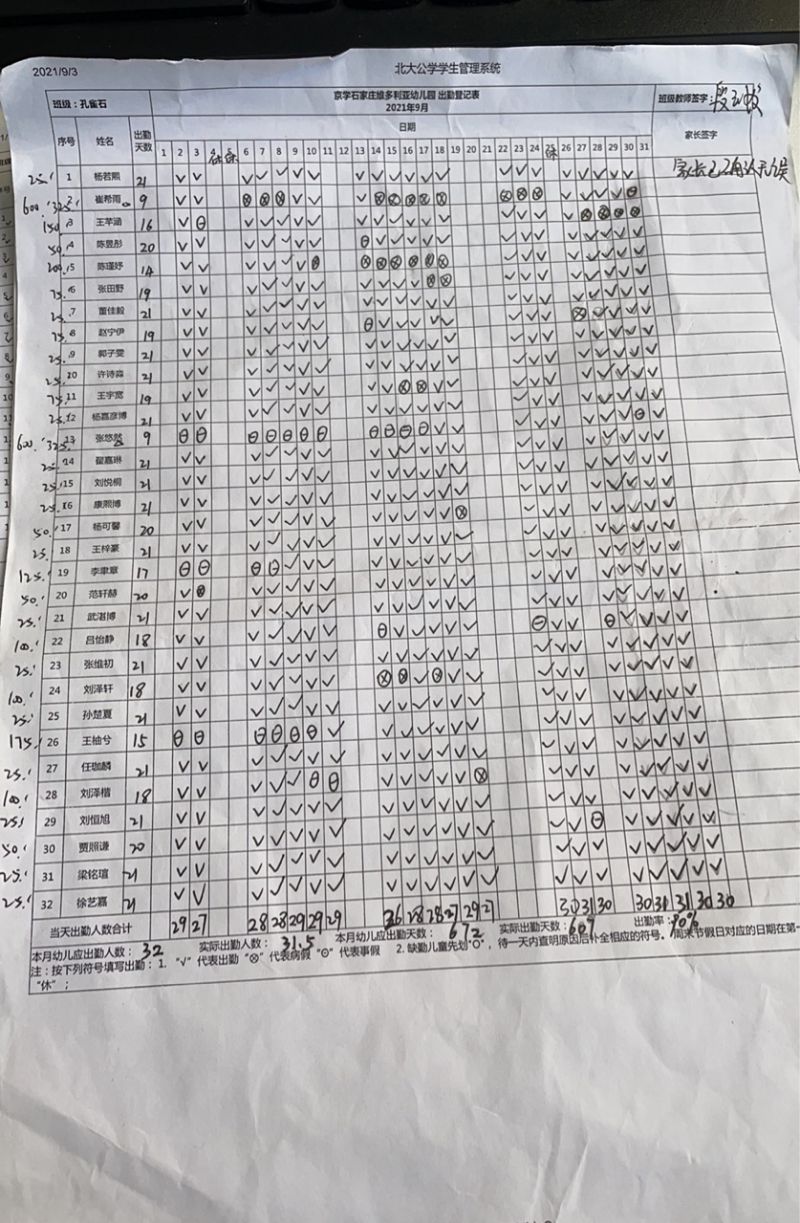 2021/9/3
北大公学学生管理系统
班级：孔雀石
京学石家庄维多利亚幼儿园 出勤登记表
2021年9月
班级教师签字：
序号 姓名 出勤天数 日期 家长签字
1 2 3 4 5 6 7 8 9 10 11 12 13 14 15 16 17 18 19 20 21 22 23 24 25 26 27 28 29 30 31
休 休 休
家长已确认无误
25. 1 杨若熙 21
600. 325. 2 崔希雨 9
150. 3 王苹涵 16
50. 4 陈昱彤 20
200. 5 陈瑾妤 14
75. 6 张田野 19
25. 7 董佳毅 21
75. 8 赵宁伊 19
25. 9 郭子雯 21
25. 10 许诗淼 21
75. 11 王宇宽 19
25. 12 杨嘉彦博 21
600. 325. 13 张悠然 9
25. 14 翟嘉琳 21
25. 15 刘悦桐 21
25. 16 康熙博 21
50. 17 杨可馨 20
25. 18 王梓豪 21
125. 19 李聿章 17
50. 20 范轩赫 20
25. 21 武湛博 21
100. 22 吕怡静 18
25. 23 张维初 21
100. 24 刘泽轩 18
25. 25 孙楚夏 21
175. 26 王柚兮 15
25. 27 任珈麟 21
100. 28 刘泽楷 18
25. 29 刘恒旭 21
50. 30 贾照谦 20
25. 31 梁铭瑄 21
25. 32 徐艺嘉 21
当天出勤人数合计 29 27 28 28 29 29 29 26 28 28 27 29 27 30 31 30 30 31 31 30 30
本月幼儿应出勤人数：32 实际出勤人数：31.5 本月幼儿应出勤天数：672 实际出勤天数：607 出勤率：90%
注：按下列符号填写出勤：1. "√" 代表出勤 "⊗" 代表病假 "⊙" 代表事假 2. 缺勤儿童先划"O"，待一天内查明原因后补全相应的符号。周末节假日对应的日期在第一
"休"；